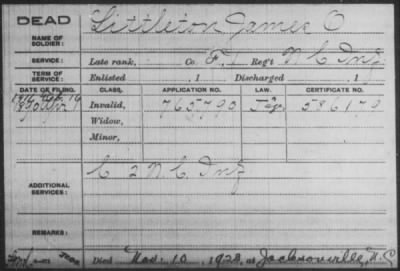 DEAD
NAME OF SOLDIER: Littleton James O
SERVICE: Late rank, Co. F, Reg't N C Inf
TERM OF SERVICE: Enlisted , 1 Discharged , 1
DATE OF FILING. CLASS. APPLICATION NO. LAW. CERTIFICATE NO.
Invalid, 765790 586179
Widow,
Minor,
ADDITIONAL SERVICES: C 2 N. C. Inf
REMARKS:
Died Nov. 10, 1928, at Jacksonville, N.C.